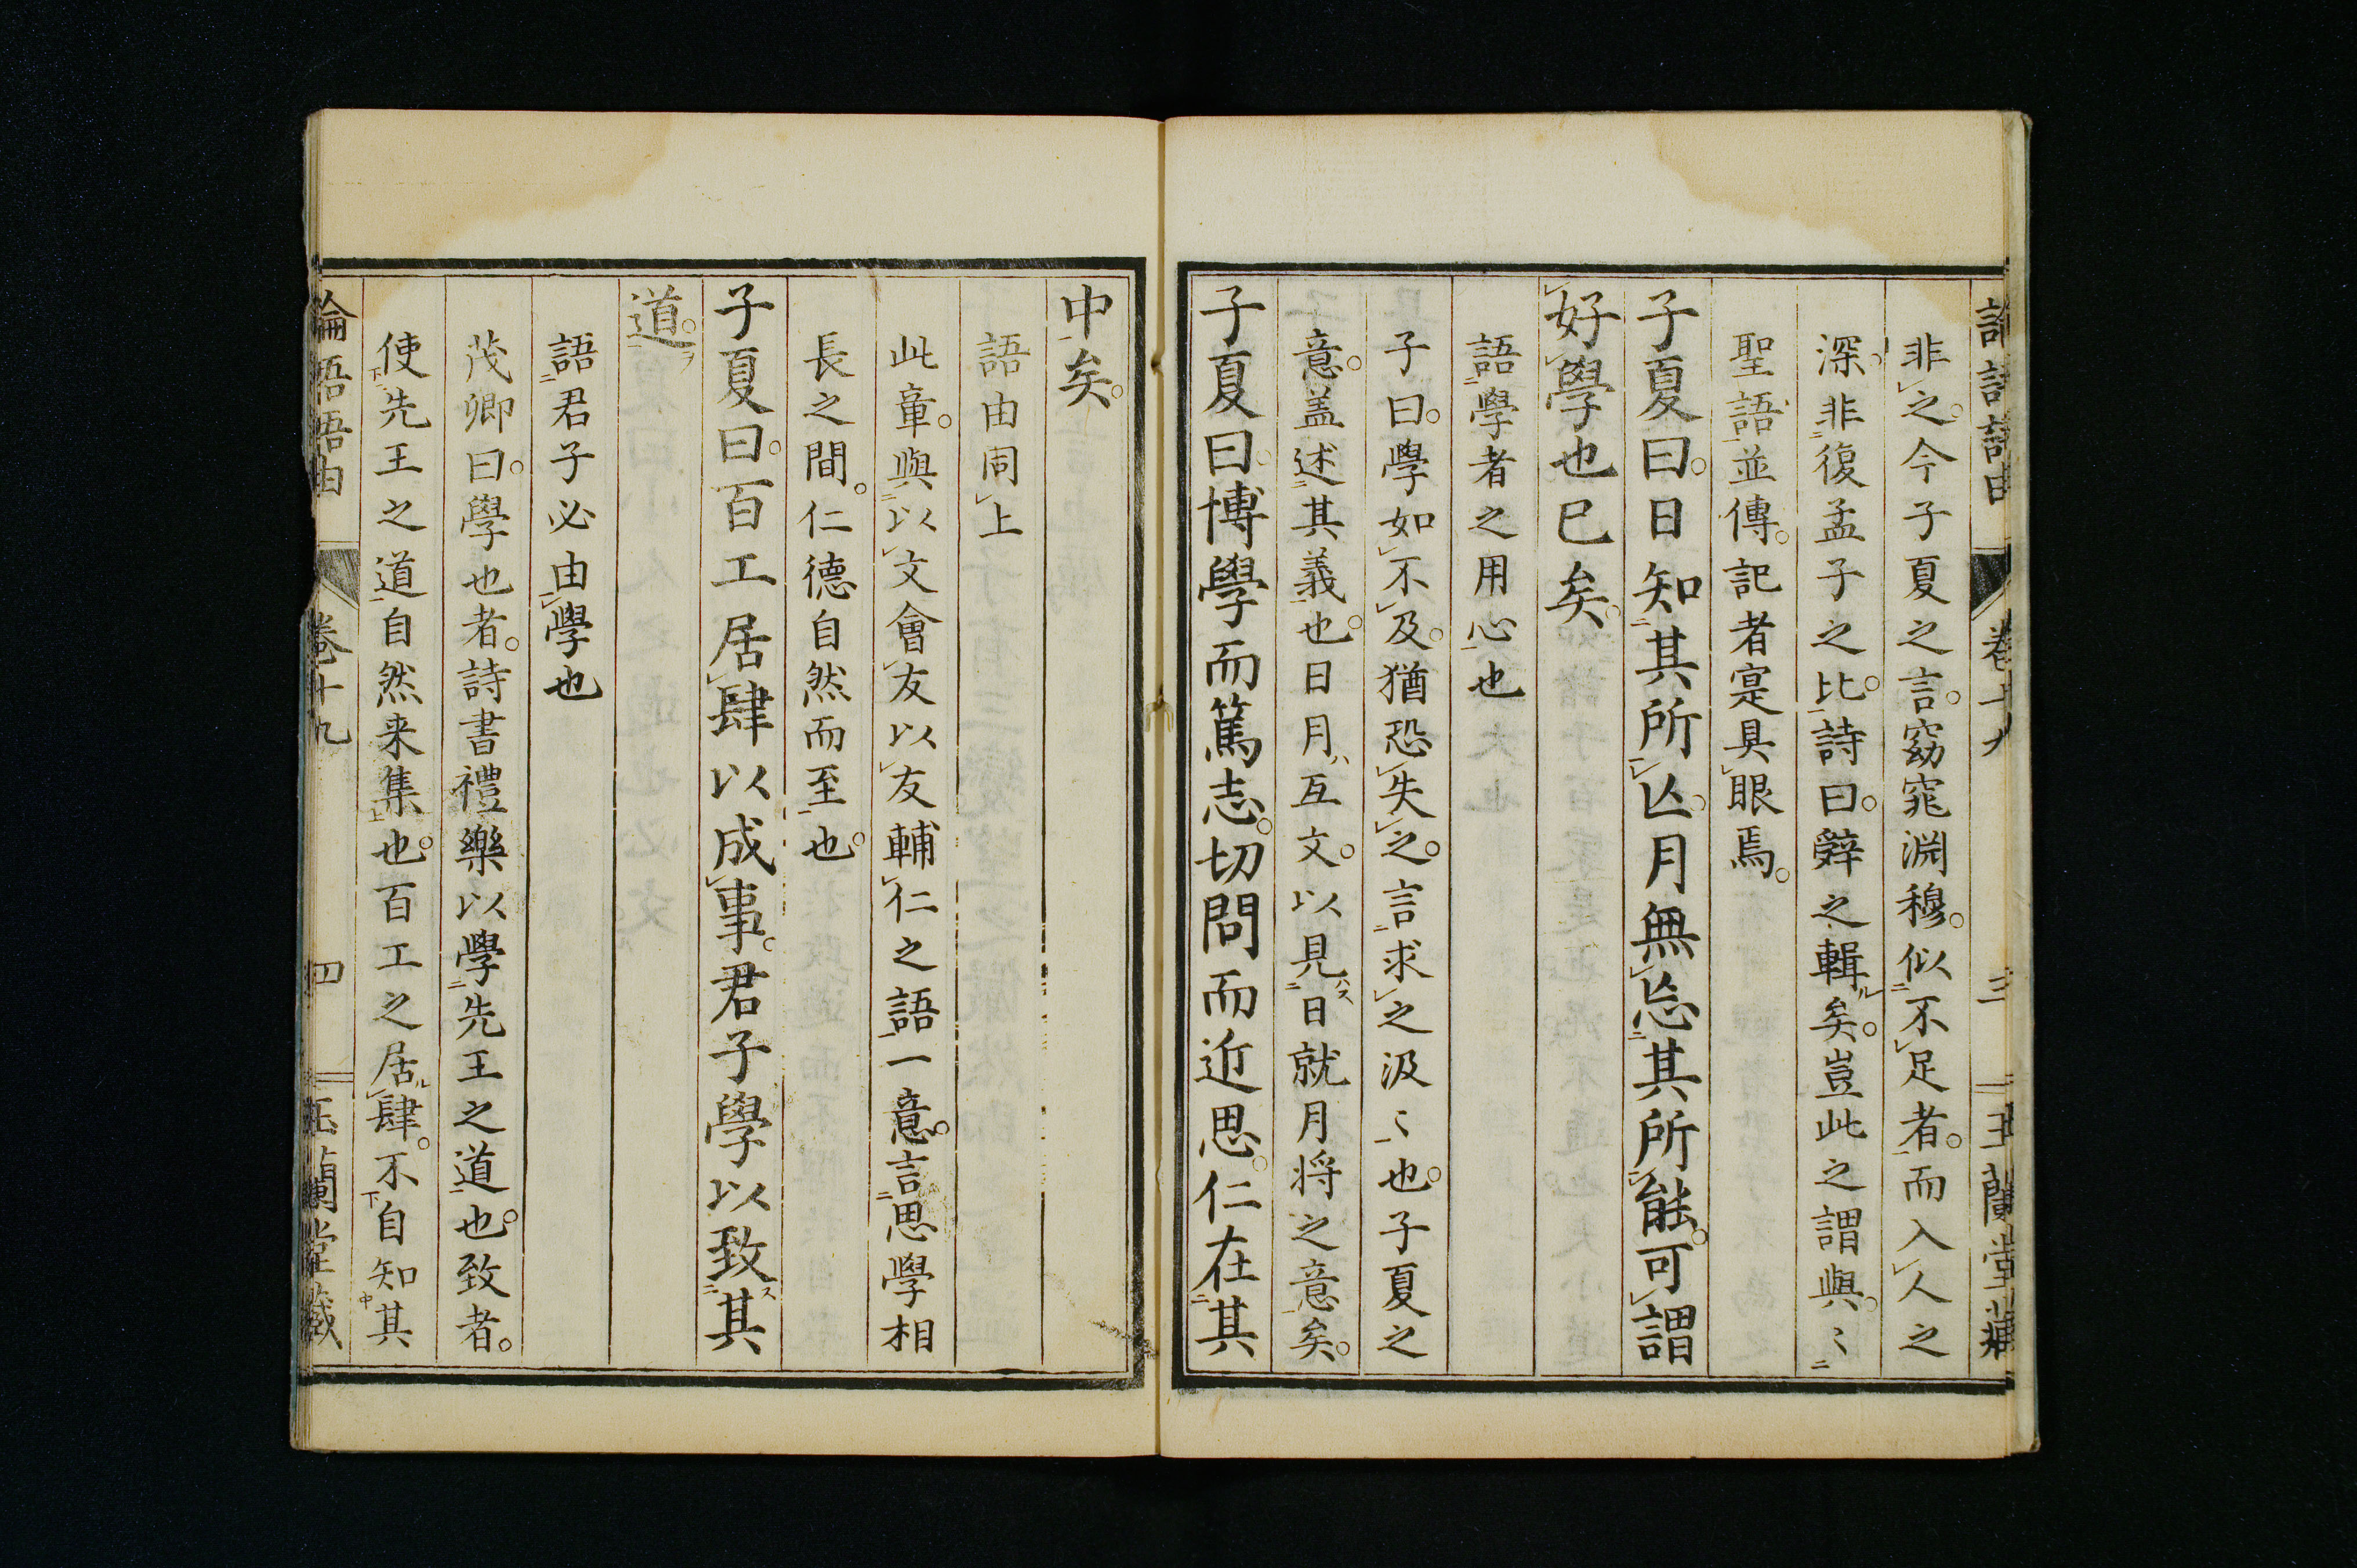 論語語由　卷十九　三　玉蘭堂藏
非之。今子夏之言。窈窕淵穆。似不足者。而入人之
深。非復孟子之比。詩曰。辭之輯矣。豈此之謂與。〻
聖語並傳。記者寔具眼焉。
子夏曰。日知其所亾。月無忘其所能。可謂
好學也已矣。
語學者之用心也
子曰。學如不及。猶恐失之。言求之汲〻也。子夏之
意。盖述其義也。日月互文。以見日就月將之意矣。
子夏曰。博學而篤志。切問而近思。仁在其
中矣。
語由同上
此章。與以文會友以友輔仁之語一意。言思學相
長之間。仁德自然而至也。
子夏曰。百工居肆以成事。君子學以致其
道。
語君子必由學也
茂卿曰。學也者。詩書禮樂以學先王之道也。致者。
使先王之道自然来集也。百工之居肆。不自知其
論語語由　卷十九　四　玉蘭堂藏